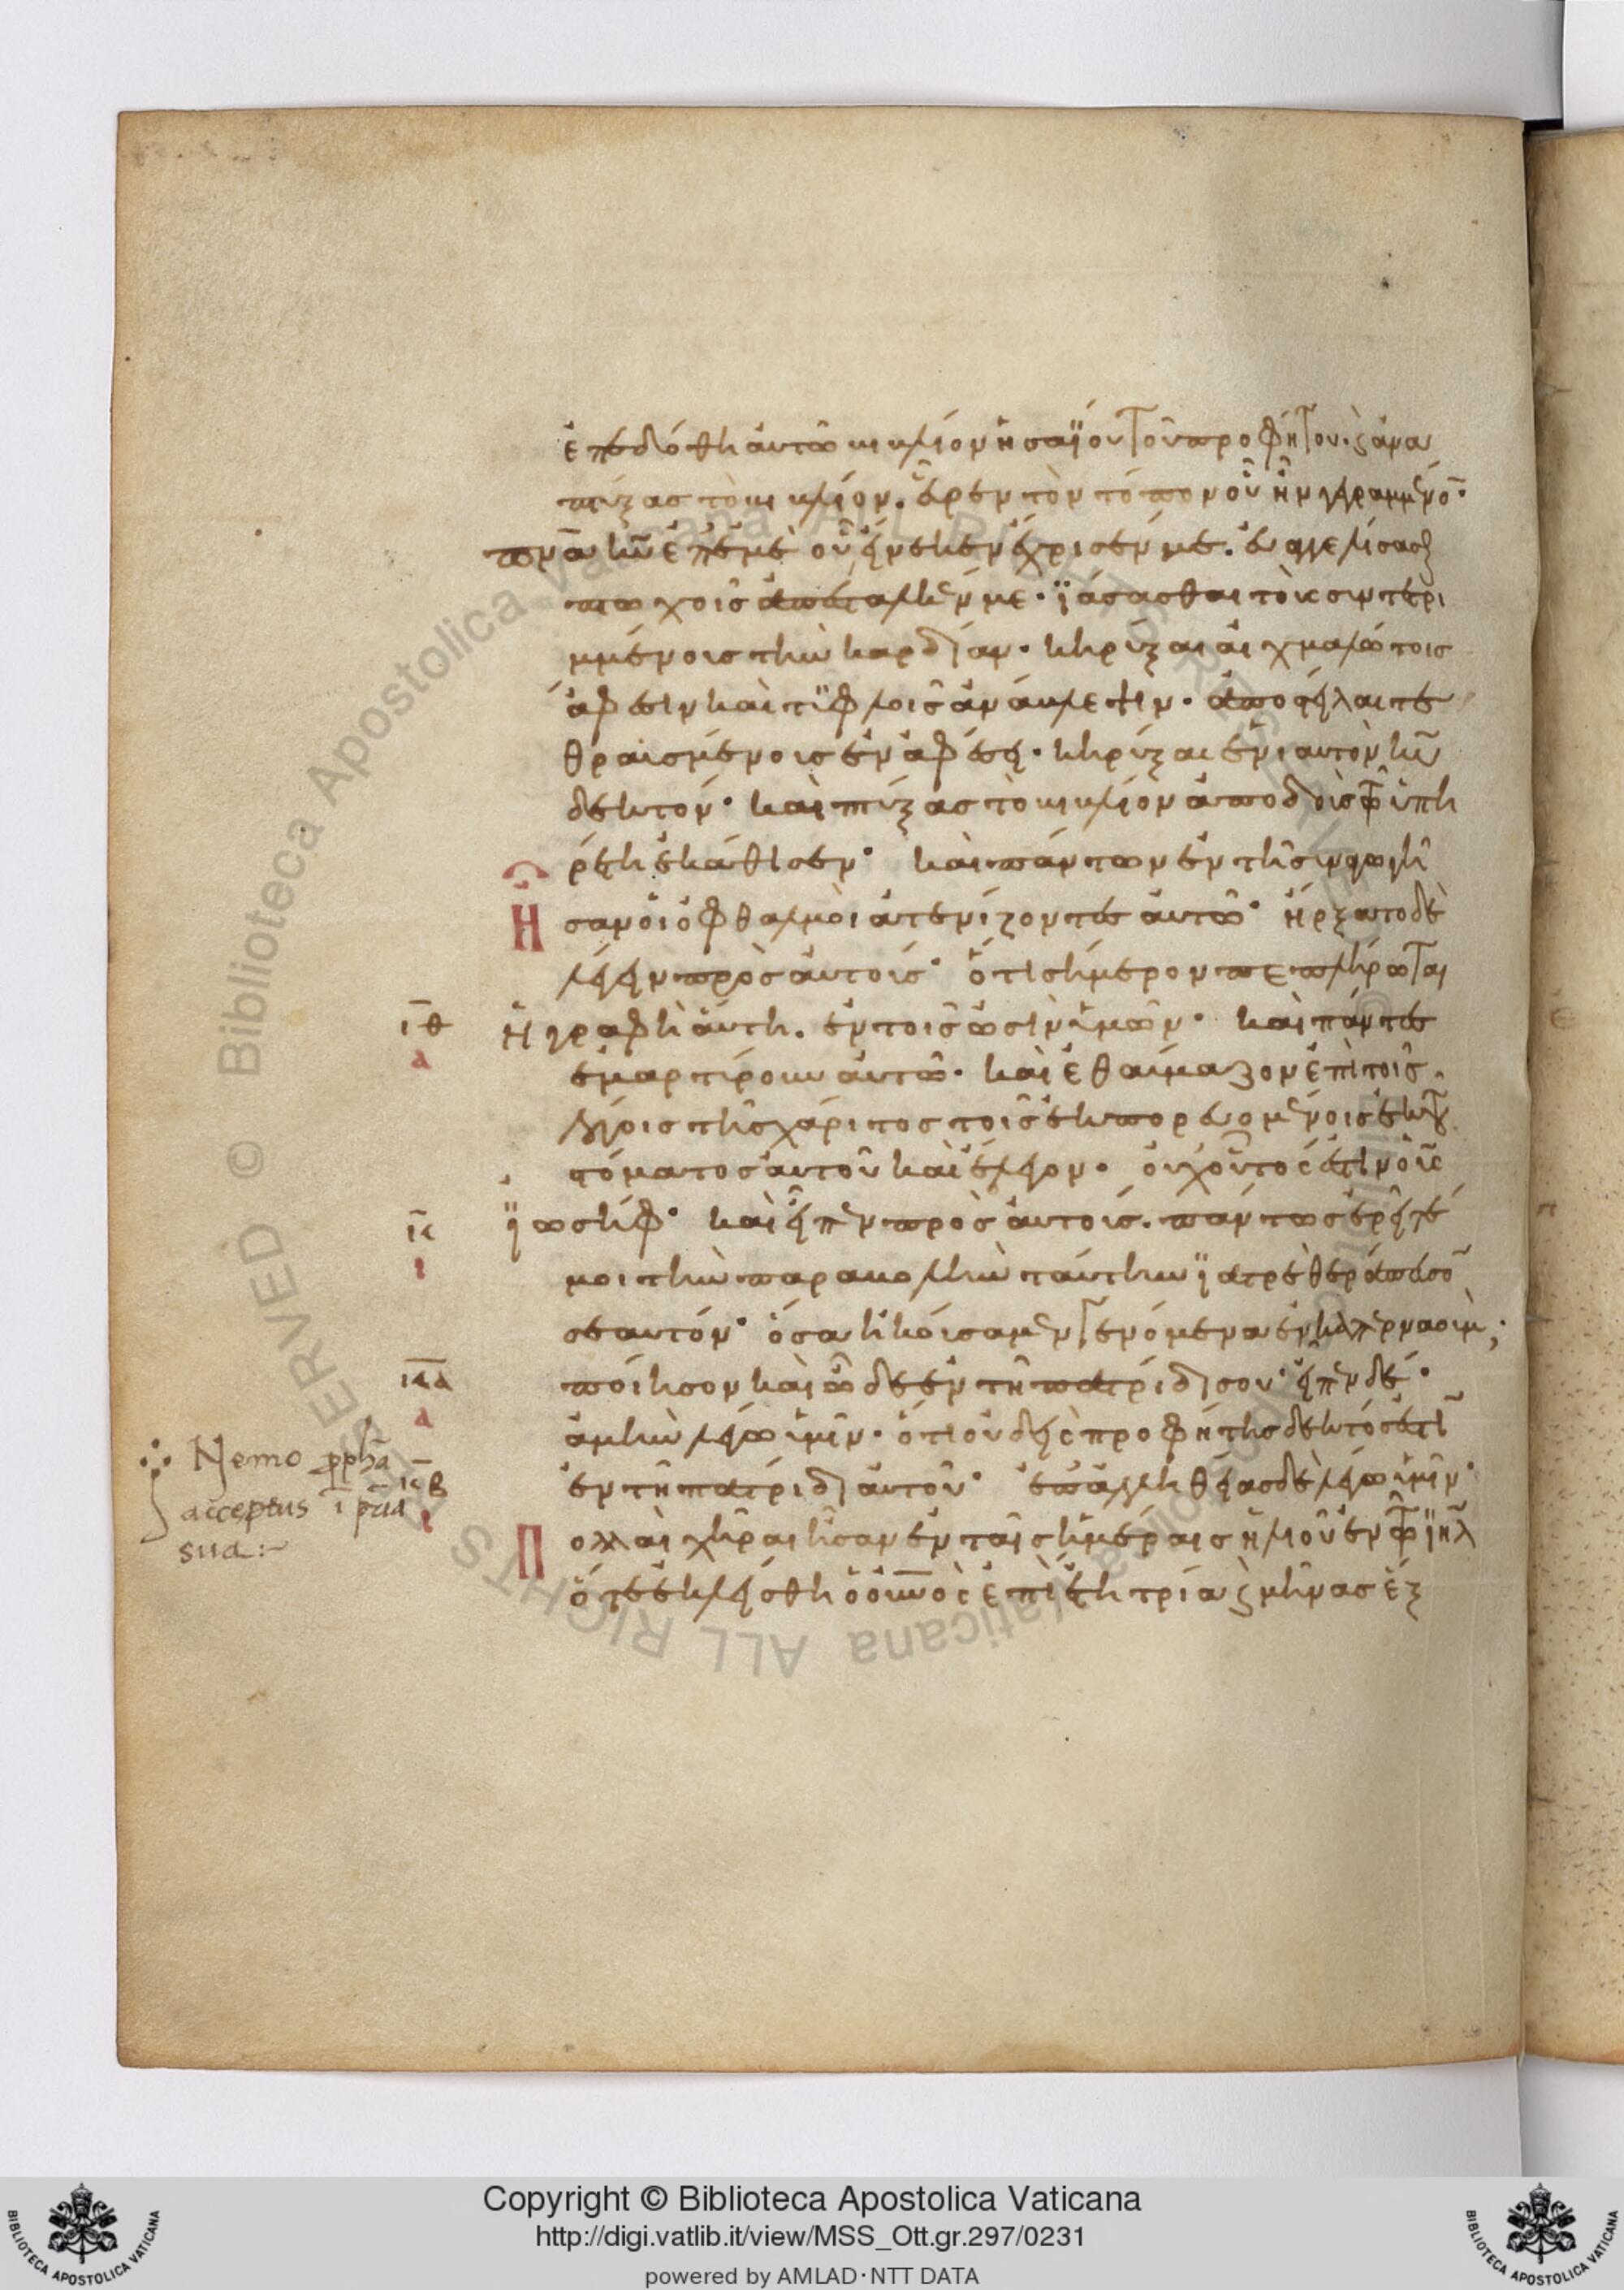 ἐπεδόθη αὐτῶ βιβλίον ἡσαΐου τοῦ προφήτου· ϗ ἀνα
πτύξας τὸ βιβλίον. εὗρεν τὸν τόπον οὗ ἦν γεγραμμένο̅·
πν̅α κῡ ἐπ' ἐμὲ οὗ εἵνεκεν ἔχρισέν με. εὐαγγελίσασθ
πτωχοῖς ἀπέσταλκέν με· ϊάσασθαι τοὺς συντετρι
μμένους τὴν καρδίαν· κηρύξαι αἰχμαλώτοις
ἄφεσιν καὶ τυφλοῖς ἀνάβλεψιν· ἀποστεῖλαι τε
θραυσμένους ἐν ἀφέσει· κηρύξαι ἐνιαυτὸν κῡ
δεκτόν· καὶ πτύξας τὸ βιβλίον ἀποδοὺς τῶ ὑπη
ρέτη ἐκάθισεν· καὶ πάντων ἐν τῆ συναγωγῆ
Ησαν οἱ ὀφθαλμοὶ ἀτενίζοντες αὐτῶ· ἤρξατο δὲ
λέγειν πρὸς αὐτούς· ὅτι σήμερον πεπλήρωται
ιθ ἡ γραφὴ αὕτη. ἐν τοῖς ὠσὶν ὑμῶν· καὶ πάντες
α ἐμαρτύρουν αὐτῶ· καὶ ἐθαύμαζον ἐπὶ τοῖς
λόγοις τῆς χάριτος τοῖς ἐκπορευομένοις ἐκ τοῦ
στόματος αὐτοῦ καὶ ἔλεγον· οὐχ οὗτός ἐστιν ὁ υ̅ς
κ ϊωσήφ· καὶ εἶπεν πρὸς αὐτούς. πάντως ἐρεῖτέ
ι μοι τὴν παραβολὴν ταύτην ϊατρὲ θεράπευσο̅
σεαυτόν· ὅσα ἠκούσαμεν γενόμενα ἐν καπερναούμ,
κα ποίησον καὶ ὧδε ἐν τῆ πατρίδι σου· εἶπεν δέ·
α ἀμὴν λέγω ὑμῖν· ὅτι οὐδεὶς προφήτης δεκτός ἐστι̅
κβ ἐν τῆ πατρίδι αὐτοῦ· ἐπ' ἀληθείας δὲ λέγω ὑμῖν·
ι Πολλαὶ χῆραι ἦσαν ἐν ταῖς ἡμέραις ἠλιοῦ ἐν τῶ ϊη̅λ
ὅτε ἐκλείσθη ὁ οὐ̅νὸς ἐπὶ ἔτη τρία ϗ μῆνας ἕξ
Nemo ppha
acceptus ī pria
sua:-
Copyright © Biblioteca Apostolica Vaticana
http://digi.vatlib.it/view/MSS_Ott.gr.297/0231
powered by AMLAD·NTT DATA
BIBLIOTECA APOSTOLICA VATICANA
BIBLIOTECA APOSTOLICA VATICANA